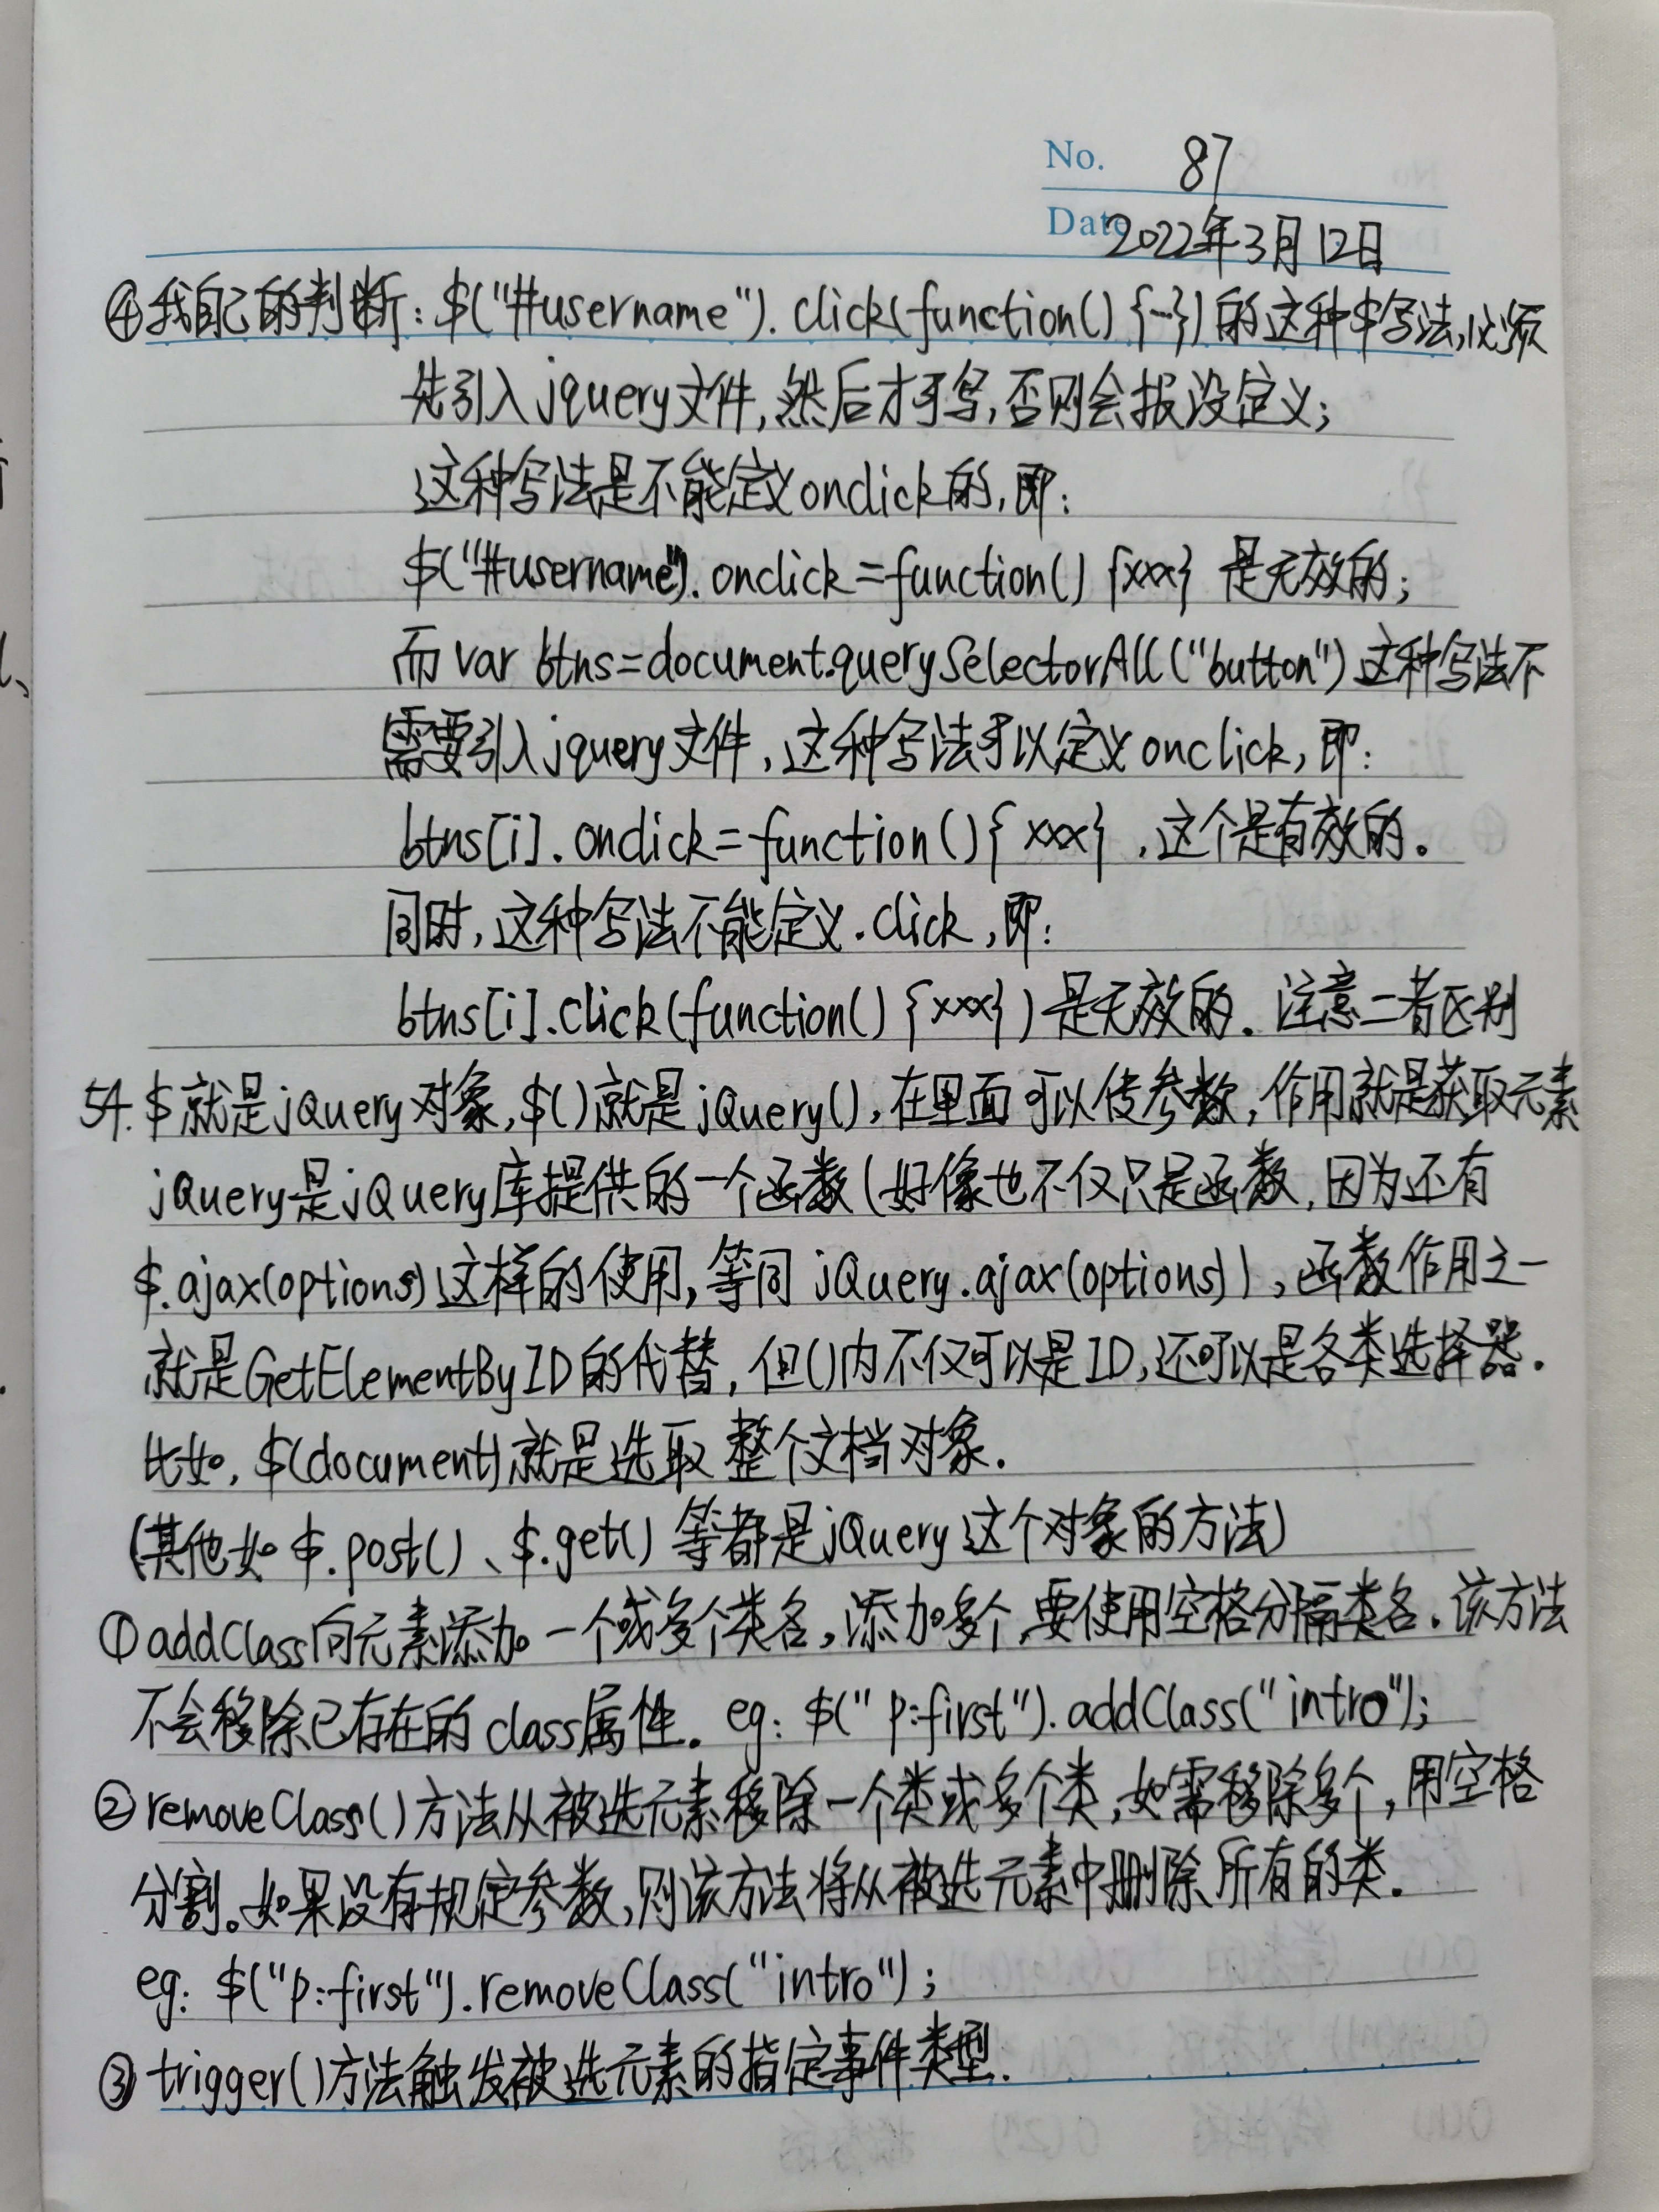 No. 87
Date 2022年3月12日
④我自己的判断:$("#username").click(function(){…})的这种$写法,必须
先引入jquery文件,然后才可写,否则会报没定义;
这种写法是不能定义onclick的,即:
$("#username").onclick=function(){xxx} 是无效的;
而var btns=document.querySelectorAll("button")这种写法不
需要引入jquery文件,这种写法可以定义onclick,即:
btns[i].onclick=function(){xxx},这个是有效的。
同时,这种写法不能定义.click,即:
btns[i].click(function(){xxx})是无效的.注意二者区别
54.$就是jQuery对象,$()就是jQuery(),在里面可以传参数,作用就是获取元素
jQuery是jQuery库提供的一个函数(好像也不仅只是函数,因为还有
$.ajax(options)这样的使用,等同jQuery.ajax(options)),函数作用之一
就是GetElementByID的代替,但()内不仅可以是ID,还可以是各类选择器.
比如,$(document)就是选取整个文档对象.
(其他如$.post()、$.get()等都是jQuery这个对象的方法)
①addClass向元素添加一个或多个类名,添加多个,要使用空格分隔类名.该方法
不会移除已存在的class属性. eg: $("p:first").addClass("intro");
②removeClass()方法从被选元素移除一个类或多个类,如需移除多个,用空格
分割。如果没有规定参数,则该方法将从被选元素中删除所有的类.
eg: $("p:first").removeClass("intro");
③trigger()方法触发被选元素的指定事件类型.